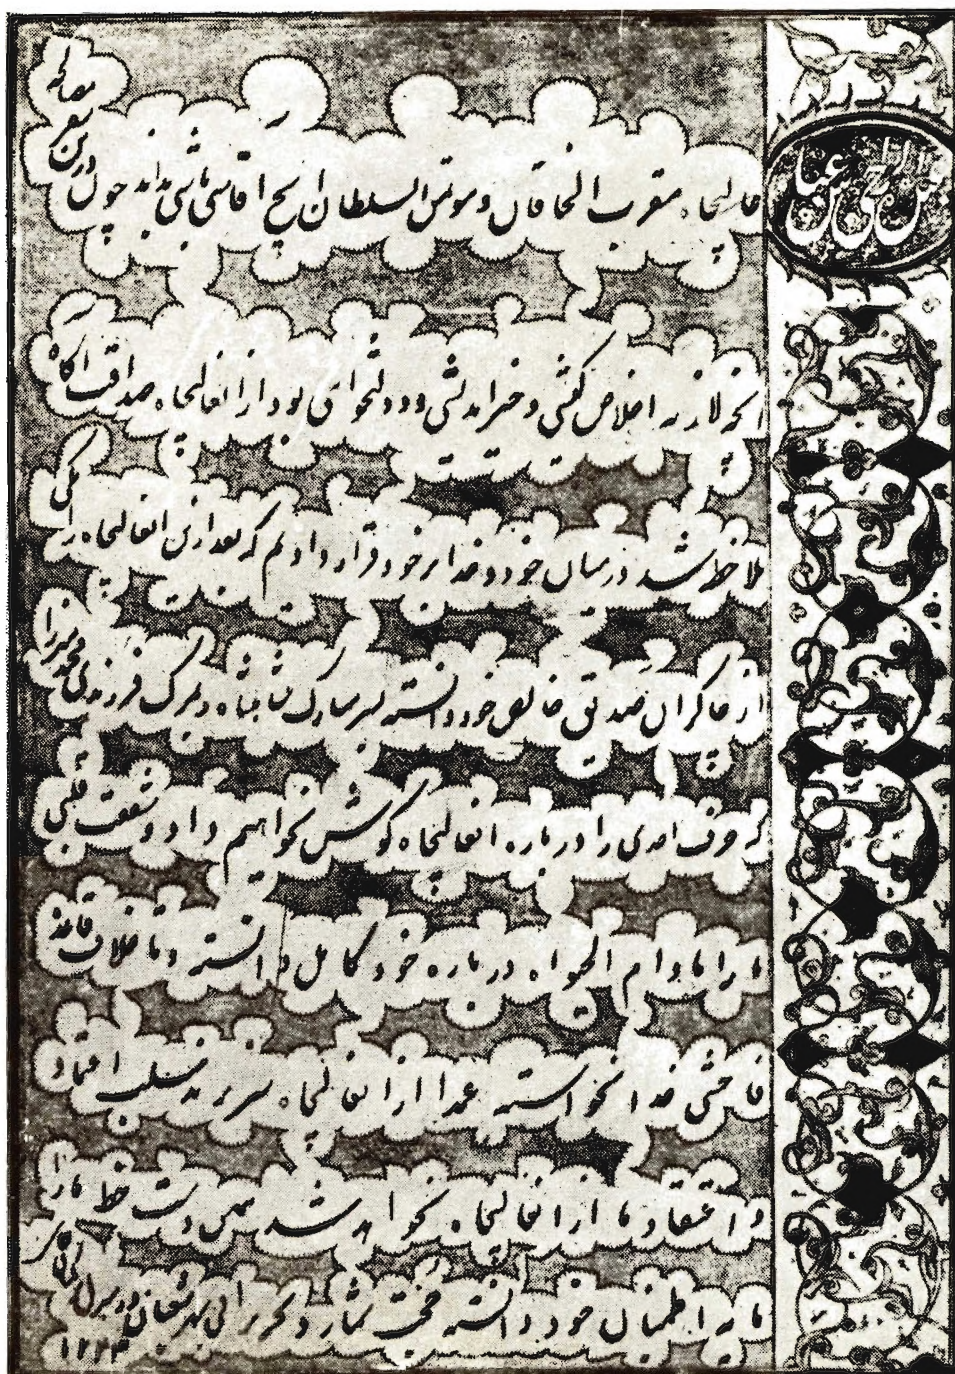 عالیجاه مقرب الخاقان و موتمن السلطان ایشیک اقاسی باشی بداند چون درین سفر
انچه لازمه اخلاص کیشی و خیراندیشی و دولتخواهی بود از انعالیجاه صداقت اگاه
ملاحظه شد در میان خود و خدا بر خود قرار دادیم که بعد ازین انعالیجاه را یکی
از چاکران صدیق خود دانسته بسر مبارک شاهنشاه و بمرگ فرزندی محمد میرزا
حرف احدی را در باره انعالیجاه گوش نخواهیم داد و شفقت قلبی
ما را مادام الحیوة در باره خود کامل دانسته و تا خلاف قاعده
فاحشی خدا نخواسته عمدا از انعالیجاه سر نزند سلب اعتماد
و اعتقاد ما از انعالیجاه نخواهد شد همین دست خط ما را
مایه اطمینان خود دانسته حجت شمارد تحریرا فی شهر شعبان
۱۲۴۴